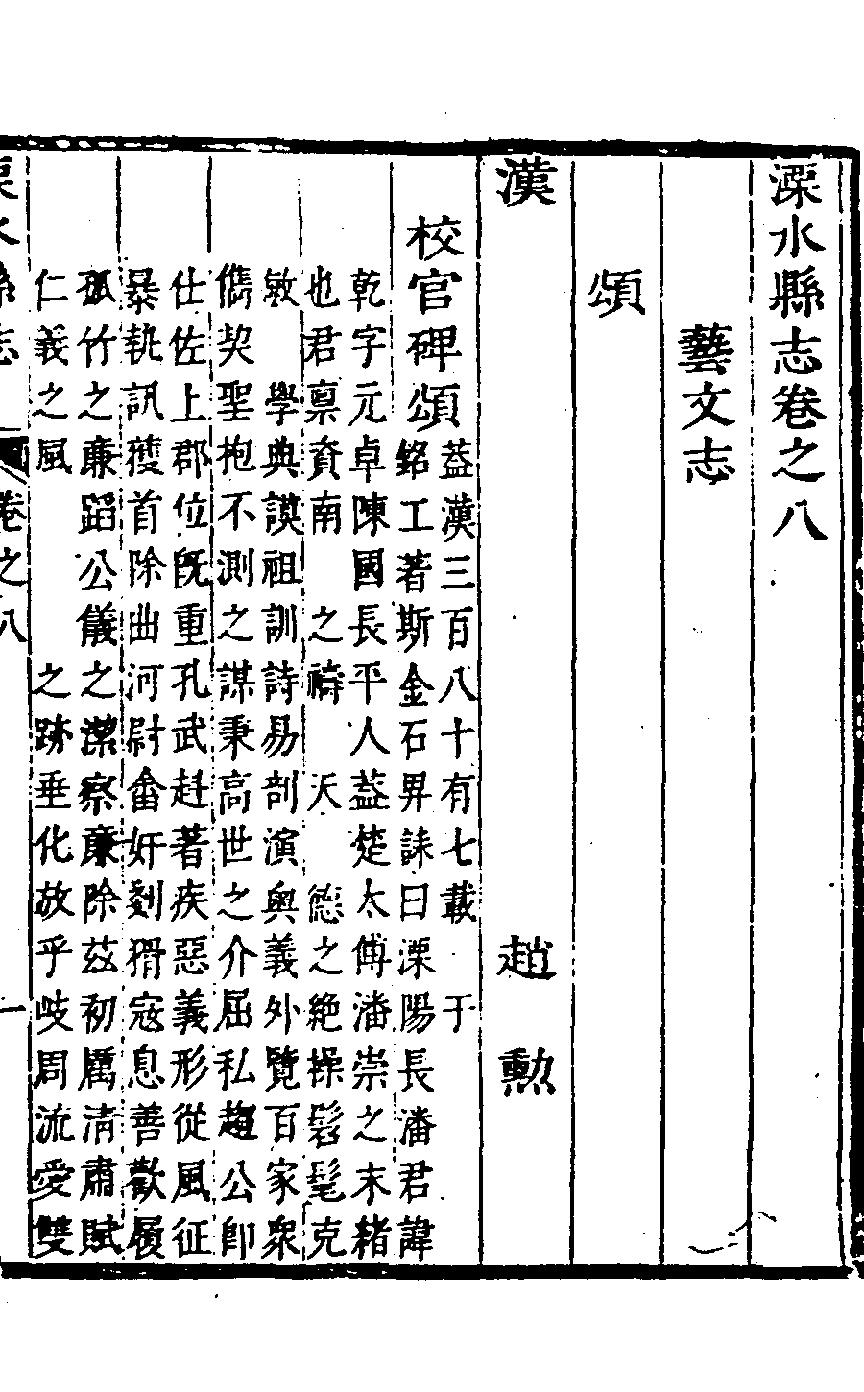 溧水縣志卷之八
藝文志
頌
漢 趙勲
校官碑頌
葢漢三百八十有七載 于
銘工著斯金石畀誄曰溧陽長潘君諱
乾字元卓陳國長平人葢楚太傅潘崇之末緒
也君禀資南 之禱 天 德之絶操髫髦克
敏 學典謨祖訓詩易剖演奥義外覽百家衆
儁契聖抱不測之謀秉高世之介屈私趨公即
仕佐上郡位旣重孔武赳著疾惡義形從風征
暴執訊獲首除曲河尉畬奸剗猾寇息善歡履
孤竹之廉蹈公儀之潔察廉除茲初厲清肅賦
仁義之風 之跡垂化放乎岐周流愛雙
溧水縣志 卷之八 一